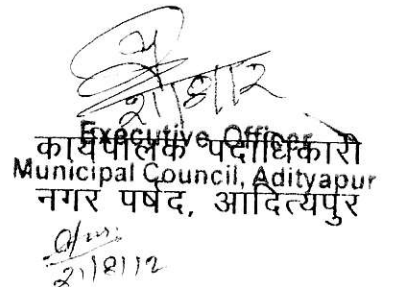 Executive Officer
कार्यपालक पदाधिकारी
Municipal Council, Adityapur
नगर पर्षद, आदित्यपुर
21/8/12